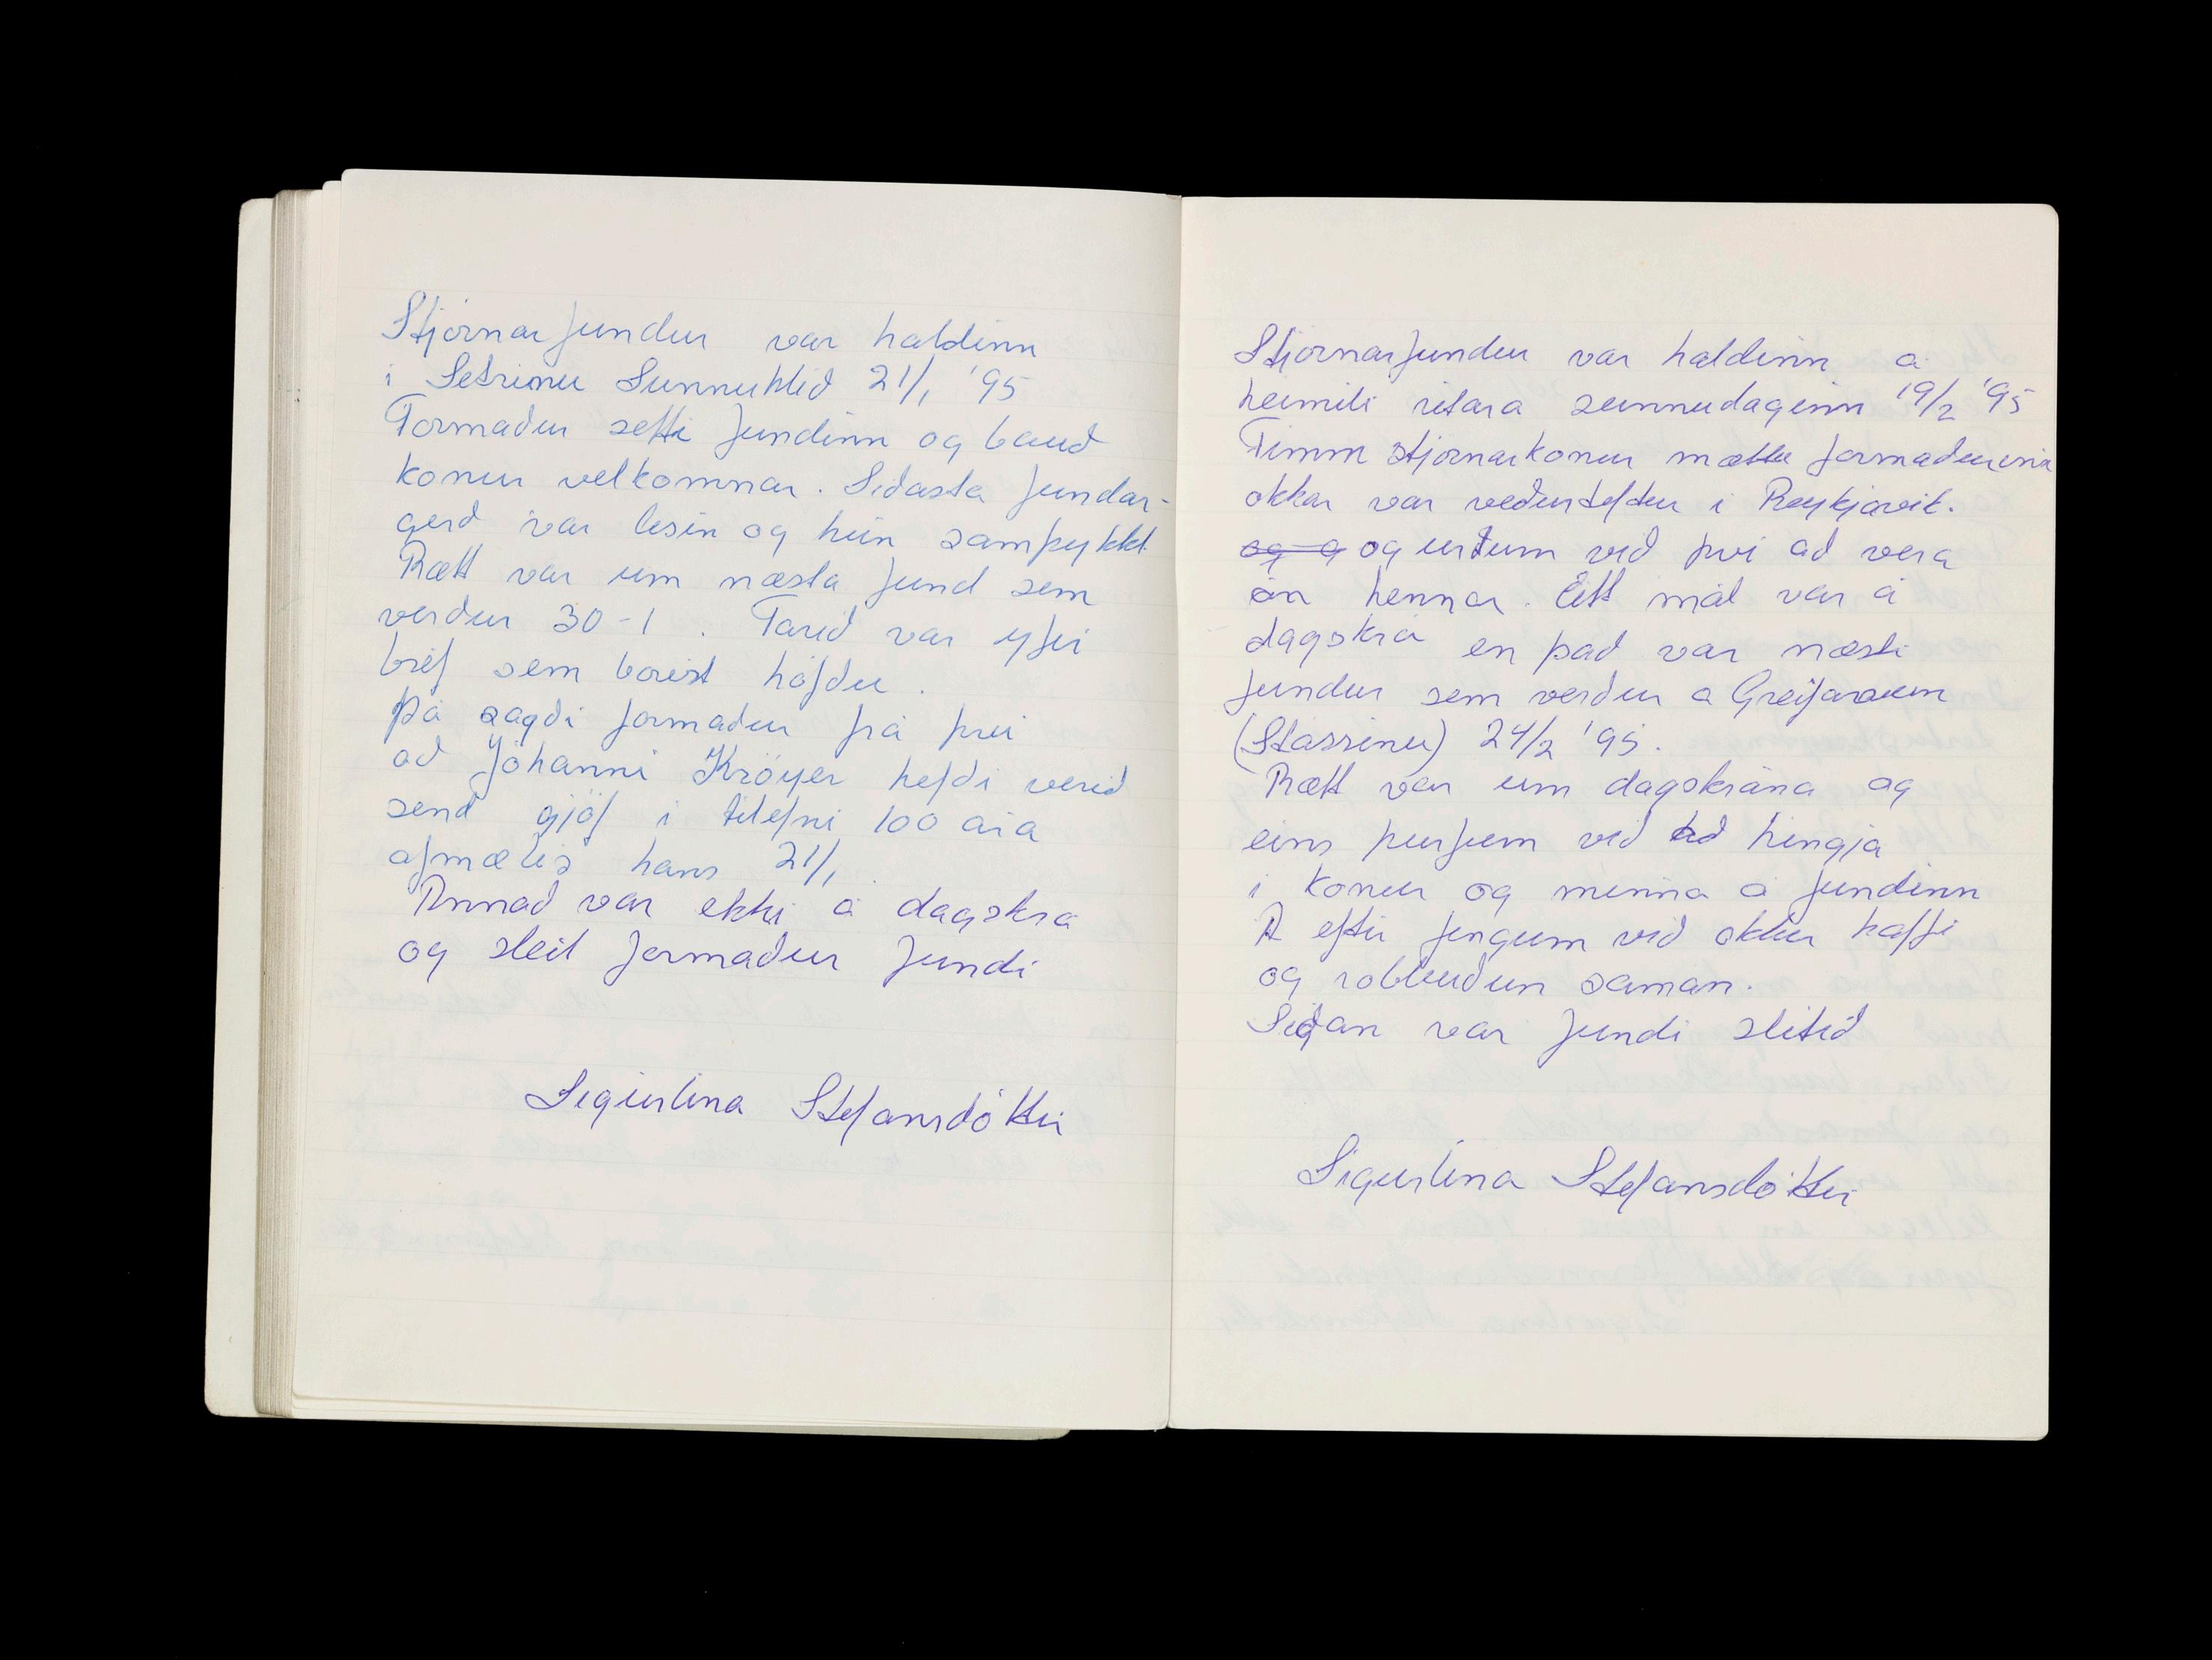 Stjórnarfundur var haldinn
í Setrinu Sunnuhlíð 21/1 '95
Formaður setti fundinn og bauð
konur velkomnar. Síðasta fundar-
gerð var lesin og hún samþykkt
Rætt var um næsta fund sem
verður 30-1. Farið var yfir
bréf sem borist höfðu.
Þá sagði formaður frá því
að Jóhanni Kröyer hefði verið
send gjöf í tilefni 100 ára
afmælis hans 21/1.
Annað var ekki á dagskrá
og sleit formaður fundi
Sigurlína Stefánsdóttir
Stjórnarfundur var haldinn á
heimili ritara sunnudaginn 19/2 '95
Fimm stjórnarkonur mættu formaðurinn
okkar var veðurteftur í Reykjavík.
og g og urðum við því að vera
án hennar. Eitt mál var á
dagskrá en það var næsti
fundur sem verður á Greifanum
(Stássinu) 24/2 '95.
Rætt var um dagskrána og
eins þurfum við að hringja
í konur og minna á fundinn
Á eftir fengum við okkur kaffi
og röbbuðum saman.
Síðan var fundi slitið
Sigurlína Stefánsdóttir